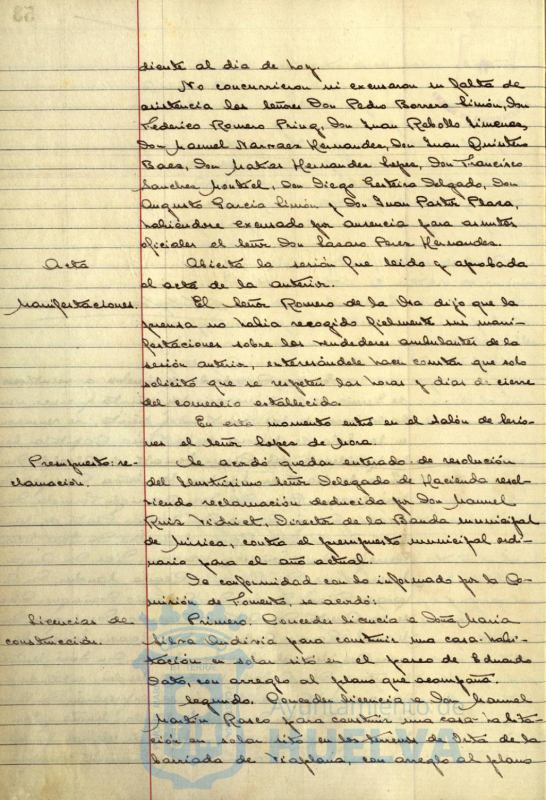 diente al dia de hoy.
No concurrieron ni excusaron su falta de
asistencia los señores Don Pedro Borrero Limón, Don
Federico Romero Don Juan Rebollo Jimenez,
Don Manuel Narvaez Hernandez, Don Juan Quintero
Baez, Don Matias Hernandez Lopez, Don Francisco
Sanchez Montiel, Don Diego Delgado, Don
Augusto Garcia Limón y Don Juan Pastor Plaza,
habiéndose excusado por ausencia para asuntos
oficiales el señor Don Lázaro Perez Hernandez.
Acta
Abierta la sesión fue leida y aprobada
el acta de la anterior.
Manifestaciones.
El señor Romero de la Osa dijo que la
prensa no habia recogido fielmente sus mani-
festaciones sobre los vendedores ambulantes de la
sesión anterior, interesándole hacer constar que solo
solicitó que se respeten las horas y dias de cierre
del comercio establecido.
En este momento entró en el salón de sesio-
nes el señor Lopez de Mora.
Presupuesto: re-
clamación.
Se acordó quedar enterado de resolución
del Ilustrísimo señor Delegado de Hacienda resol-
viendo reclamación deducida por Don Manuel
Ruiz Vidriet, Director de la Banda municipal
de Música, contra el presupuesto municipal ordi-
nario para el año actual.
De conformidad con lo informado por la Co-
misión de Fomento, se acordó:
Licencias de
construcción.
Primero. Conceder licencia a Doña María
Silva para construir una casa-habi-
tación en solar sito en el paseo de Eduardo
Dato, con arreglo al plano que acompaña.
Segundo. Conceder licencia a Don Manuel
Martín Rasco para construir una casa-habita-
ción en solar sito en los terrenos de Orta de la
barriada de Viaplana, con arreglo al plano
Ayuntamiento de
HUELVA